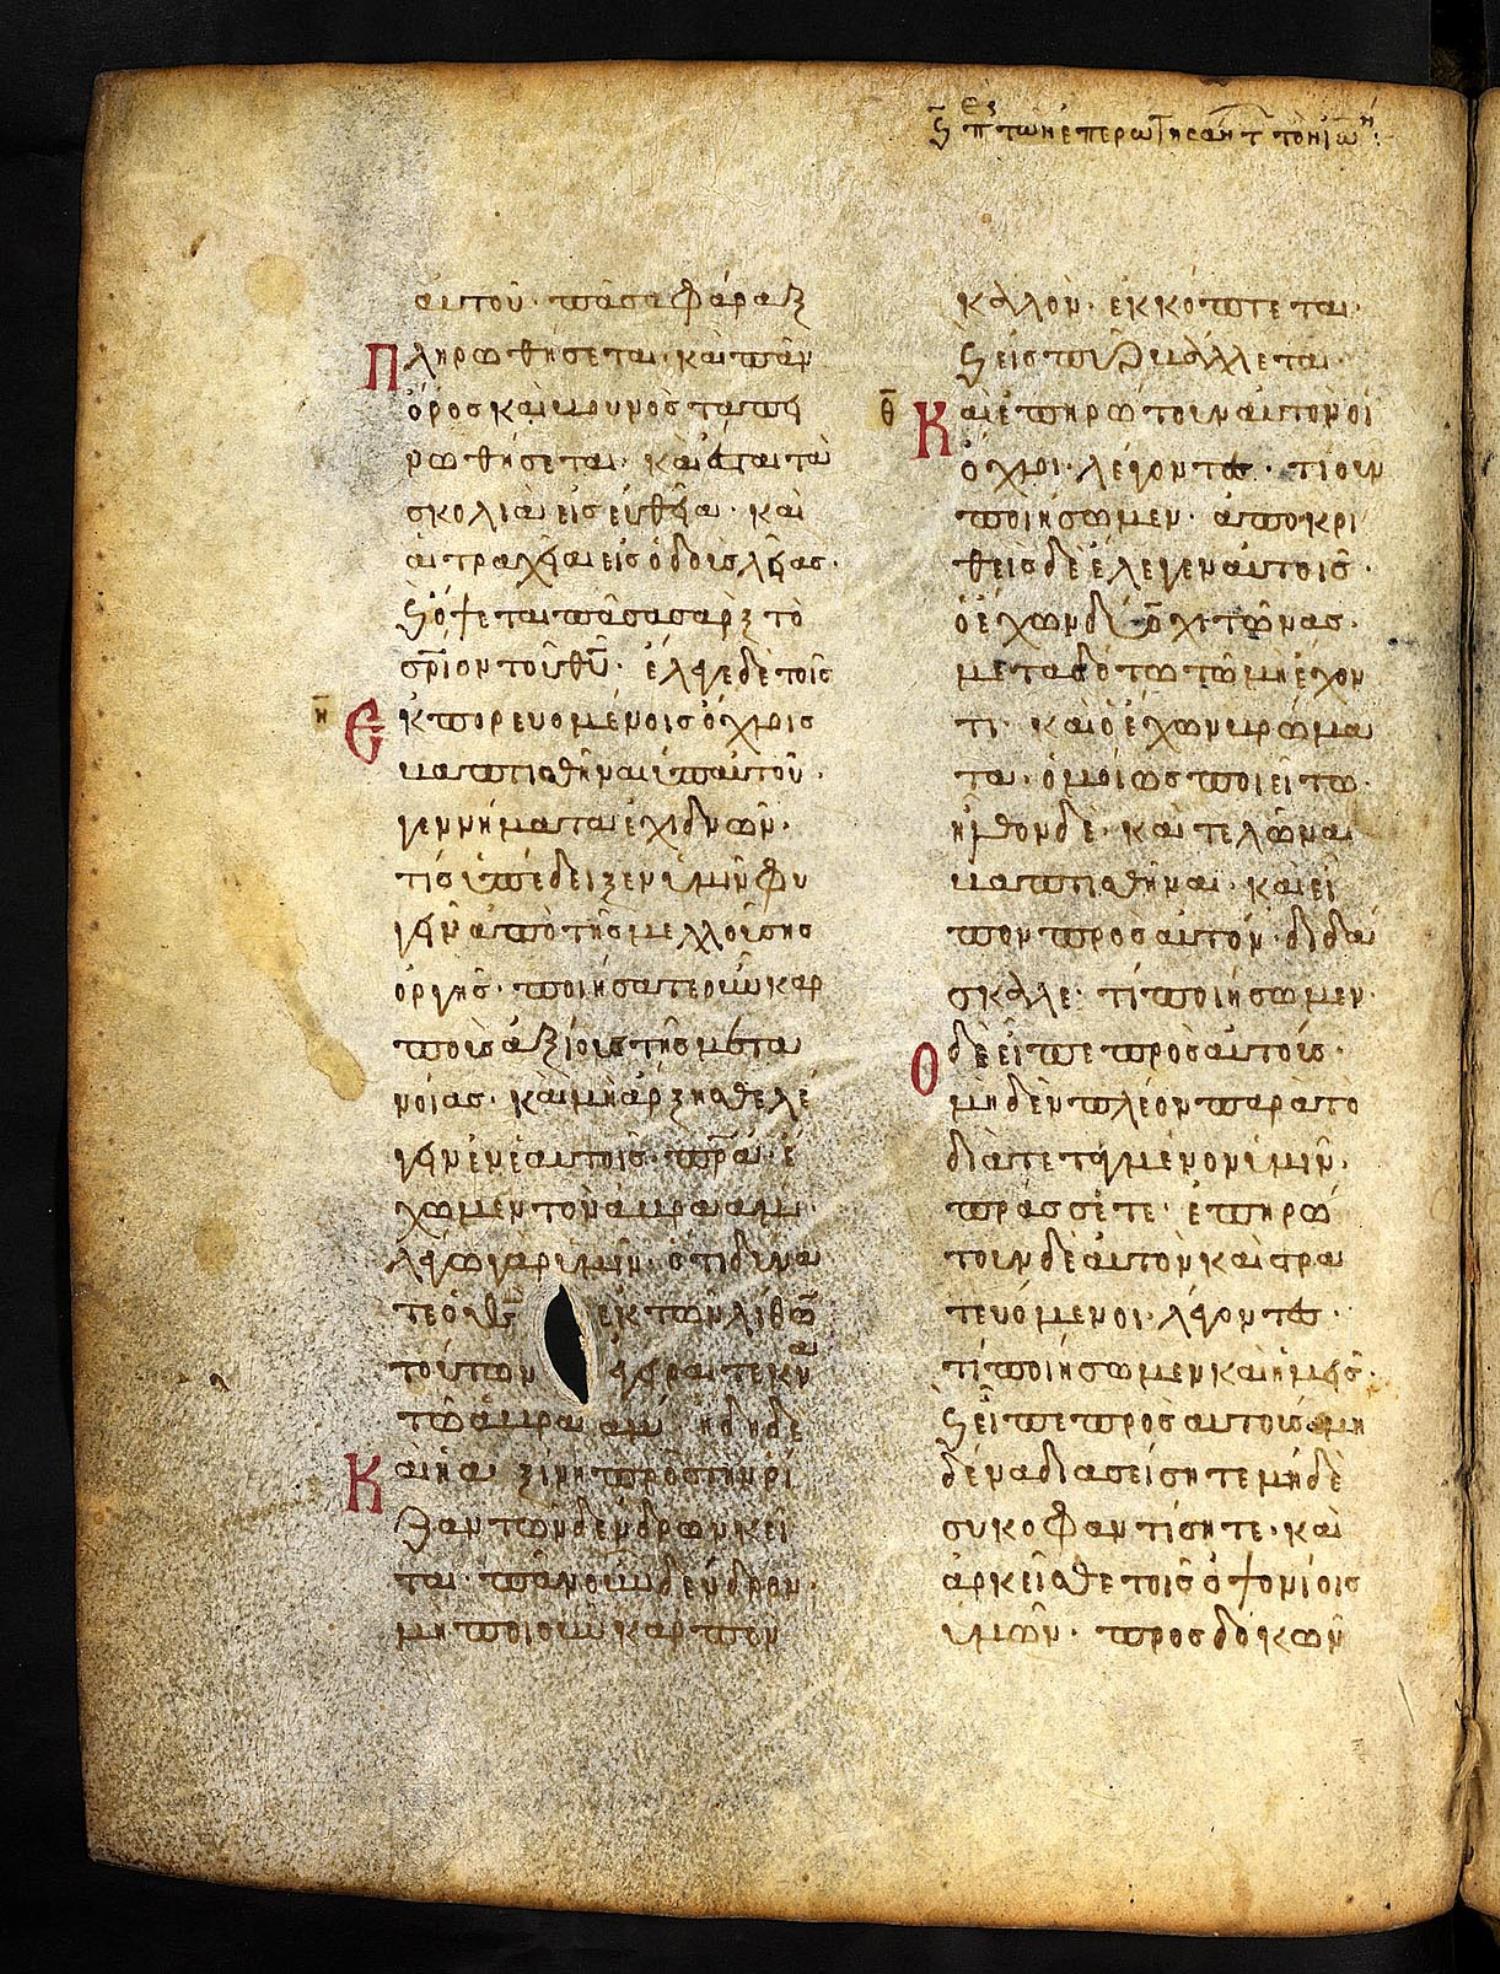 Ϛ ΠΕΡ τῶν ἐπερωτησάντ τὸν ἰω:
αυτοῦ· πᾶσα φάραξ
Πληρωθήσεται· και πᾶν
ὄρος και βουνὸς ταπει
νωθήσεται· και ἔσται τὰ
σκολιὰ εἰς εὐθεῖαν· και
αἱ τραχεῖαι εἰς ὁδοὺς λείας·
Ϛ ὄψεται πᾶσα σαρξ τὸ
σριον τοῦ θυ· ἔλεγε δὲ τοῖς
η Εκπορευομένοις ὄχλοις
βαπτισθῆναι ὑπ αυτοῦ·
γεννήματα ἐχιδνῶν·
τίς ὑπέδειξεν ὑμῖν φυ
γεῖν ἀπὸ τῆς μελλούσης
ὀργῆς· ποιήσατε οὖν καρ
ποὺς ἀξίους τῆς μετα
νοίας· και μὴ ἄρξησθε λέ
γειν ἐν ἑαυτοῖς· πρα ἔ
χωμεν τὸν ἀβρααμ·
λέγω γὰρ ὑμῖν· ὅτι δύνα
τε ὁ θς ἐκ τῶν λίθω
τούτων ἐγεραι τεκνα
τῶ ἀβρααμ ἤδη δὲ
Και ἡ αξίνη πρὸς τὴν ρί
ζαν τῶν δένδρων κεῖ
ται· πᾶν οὖν δένδρον·
μὴ ποιοῦν καρπὸν
καλλὸν· ἐκκόπτεται·
Ϛ εἰς πυρ βάλλεται·
θ Και ἐπηρώτουν αυτον οἱ
ὄχλοι· λέγοντες· τί οὖν
ποιήσωμεν· ἀποκρι
θεὶς δὲ ἔλεγεν αυτοῖς·
ὁ ἔχων δύο χιτῶνας·
μεταδότω τῶ μὴ ἔχον
τι· και ὁ ἔχων βρώμα
τα· ὁμοίως ποιείτω·
ἦλθον δὲ· και τελῶναι
βαπτισθῆναι· και εἶ
πον πρὸς αυτόν· διδά
σκαλλε· τί ποιήσωμεν·
Ο δὲ εἶπε πρὸς αυτούς·
μηδὲν πλέον παρὰ τὸ
διατεταγμένον ὑμῖν·
πράσσετε· ἐπηρώ
τουν δὲ αυτὸν και στρα
τευόμενοι· λέγοντες·
τί ποιήσωμεν και ἡμεῖς·
Ϛ εἶπε πρὸς αυτους· μη
δένα διασείσητε μηδὲ
συκοφαντίσητε· και
ἀρκεῖσθε τοῖς ὀψονίοις
ὑμῶν· προσδόκων